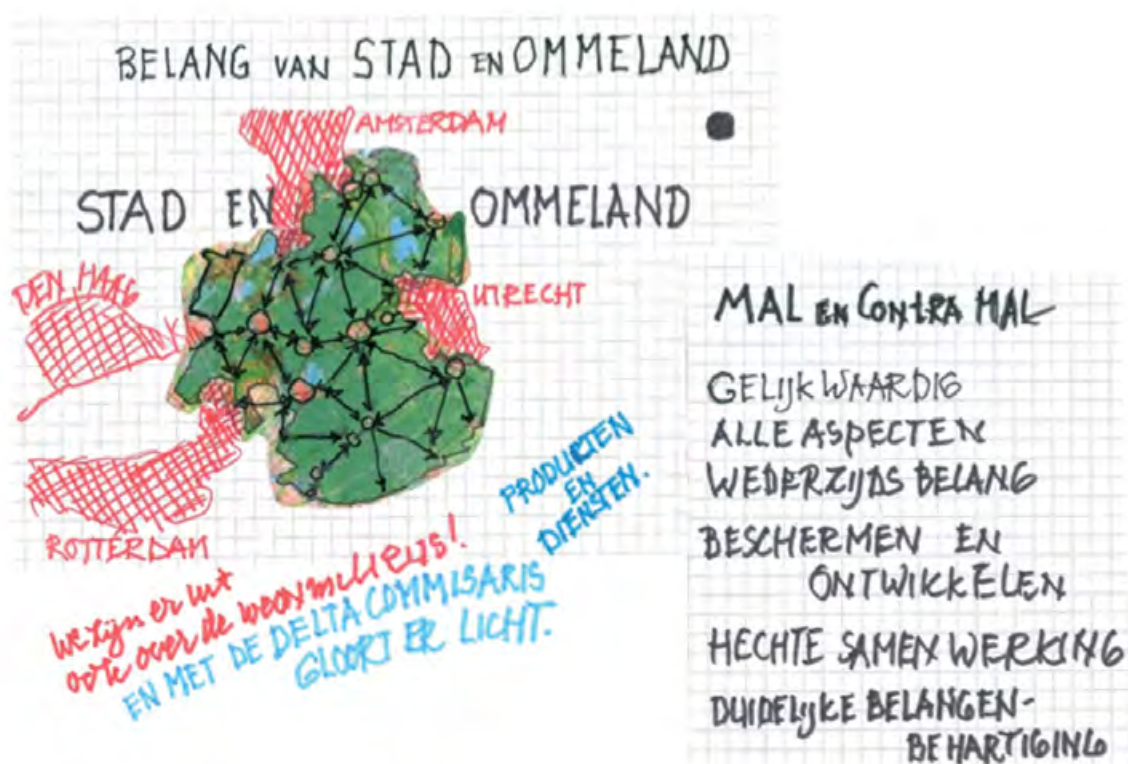 BELANG VAN STAD EN OMMELAND
AMSTERDAM
STAD EN OMMELAND
DEN HAAG
UTRECHT
ROTTERDAM
PRODUKTEN
EN
DIENSTEN.
We zijn er uit
ook over de woonmilieus!
EN MET DE DELTA COMMISARIS
GLOORT ER LICHT.
MAL EN CONTRA MAL
GELIJKWAARDIG
ALLE ASPECTEN
WEDERZIJDS BELANG
BESCHERMEN EN
ONTWIKKELEN
HECHTE SAMENWERKING
DUIDELIJKE BELANGEN-
BEHARTIGING